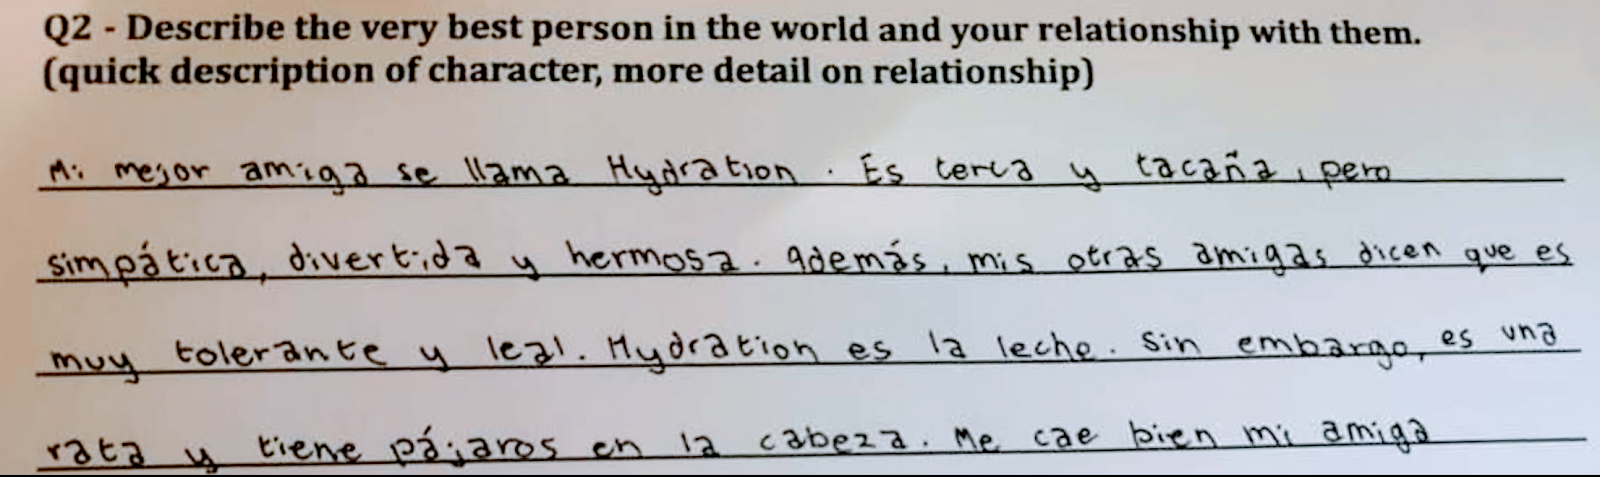 Q2 - Describe the very best person in the world and your relationship with them.
(quick description of character, more detail on relationship)
Mi mejor amiga se llama Hydration. Es terca y tacaña, pero
simpática, divertida y hermosa. Además, mis otras amigas dicen que es
muy tolerante y leal. Hydration es la leche. Sin embargo, es una
rata y tiene pájaros en la cabeza. Me cae bien mi amiga